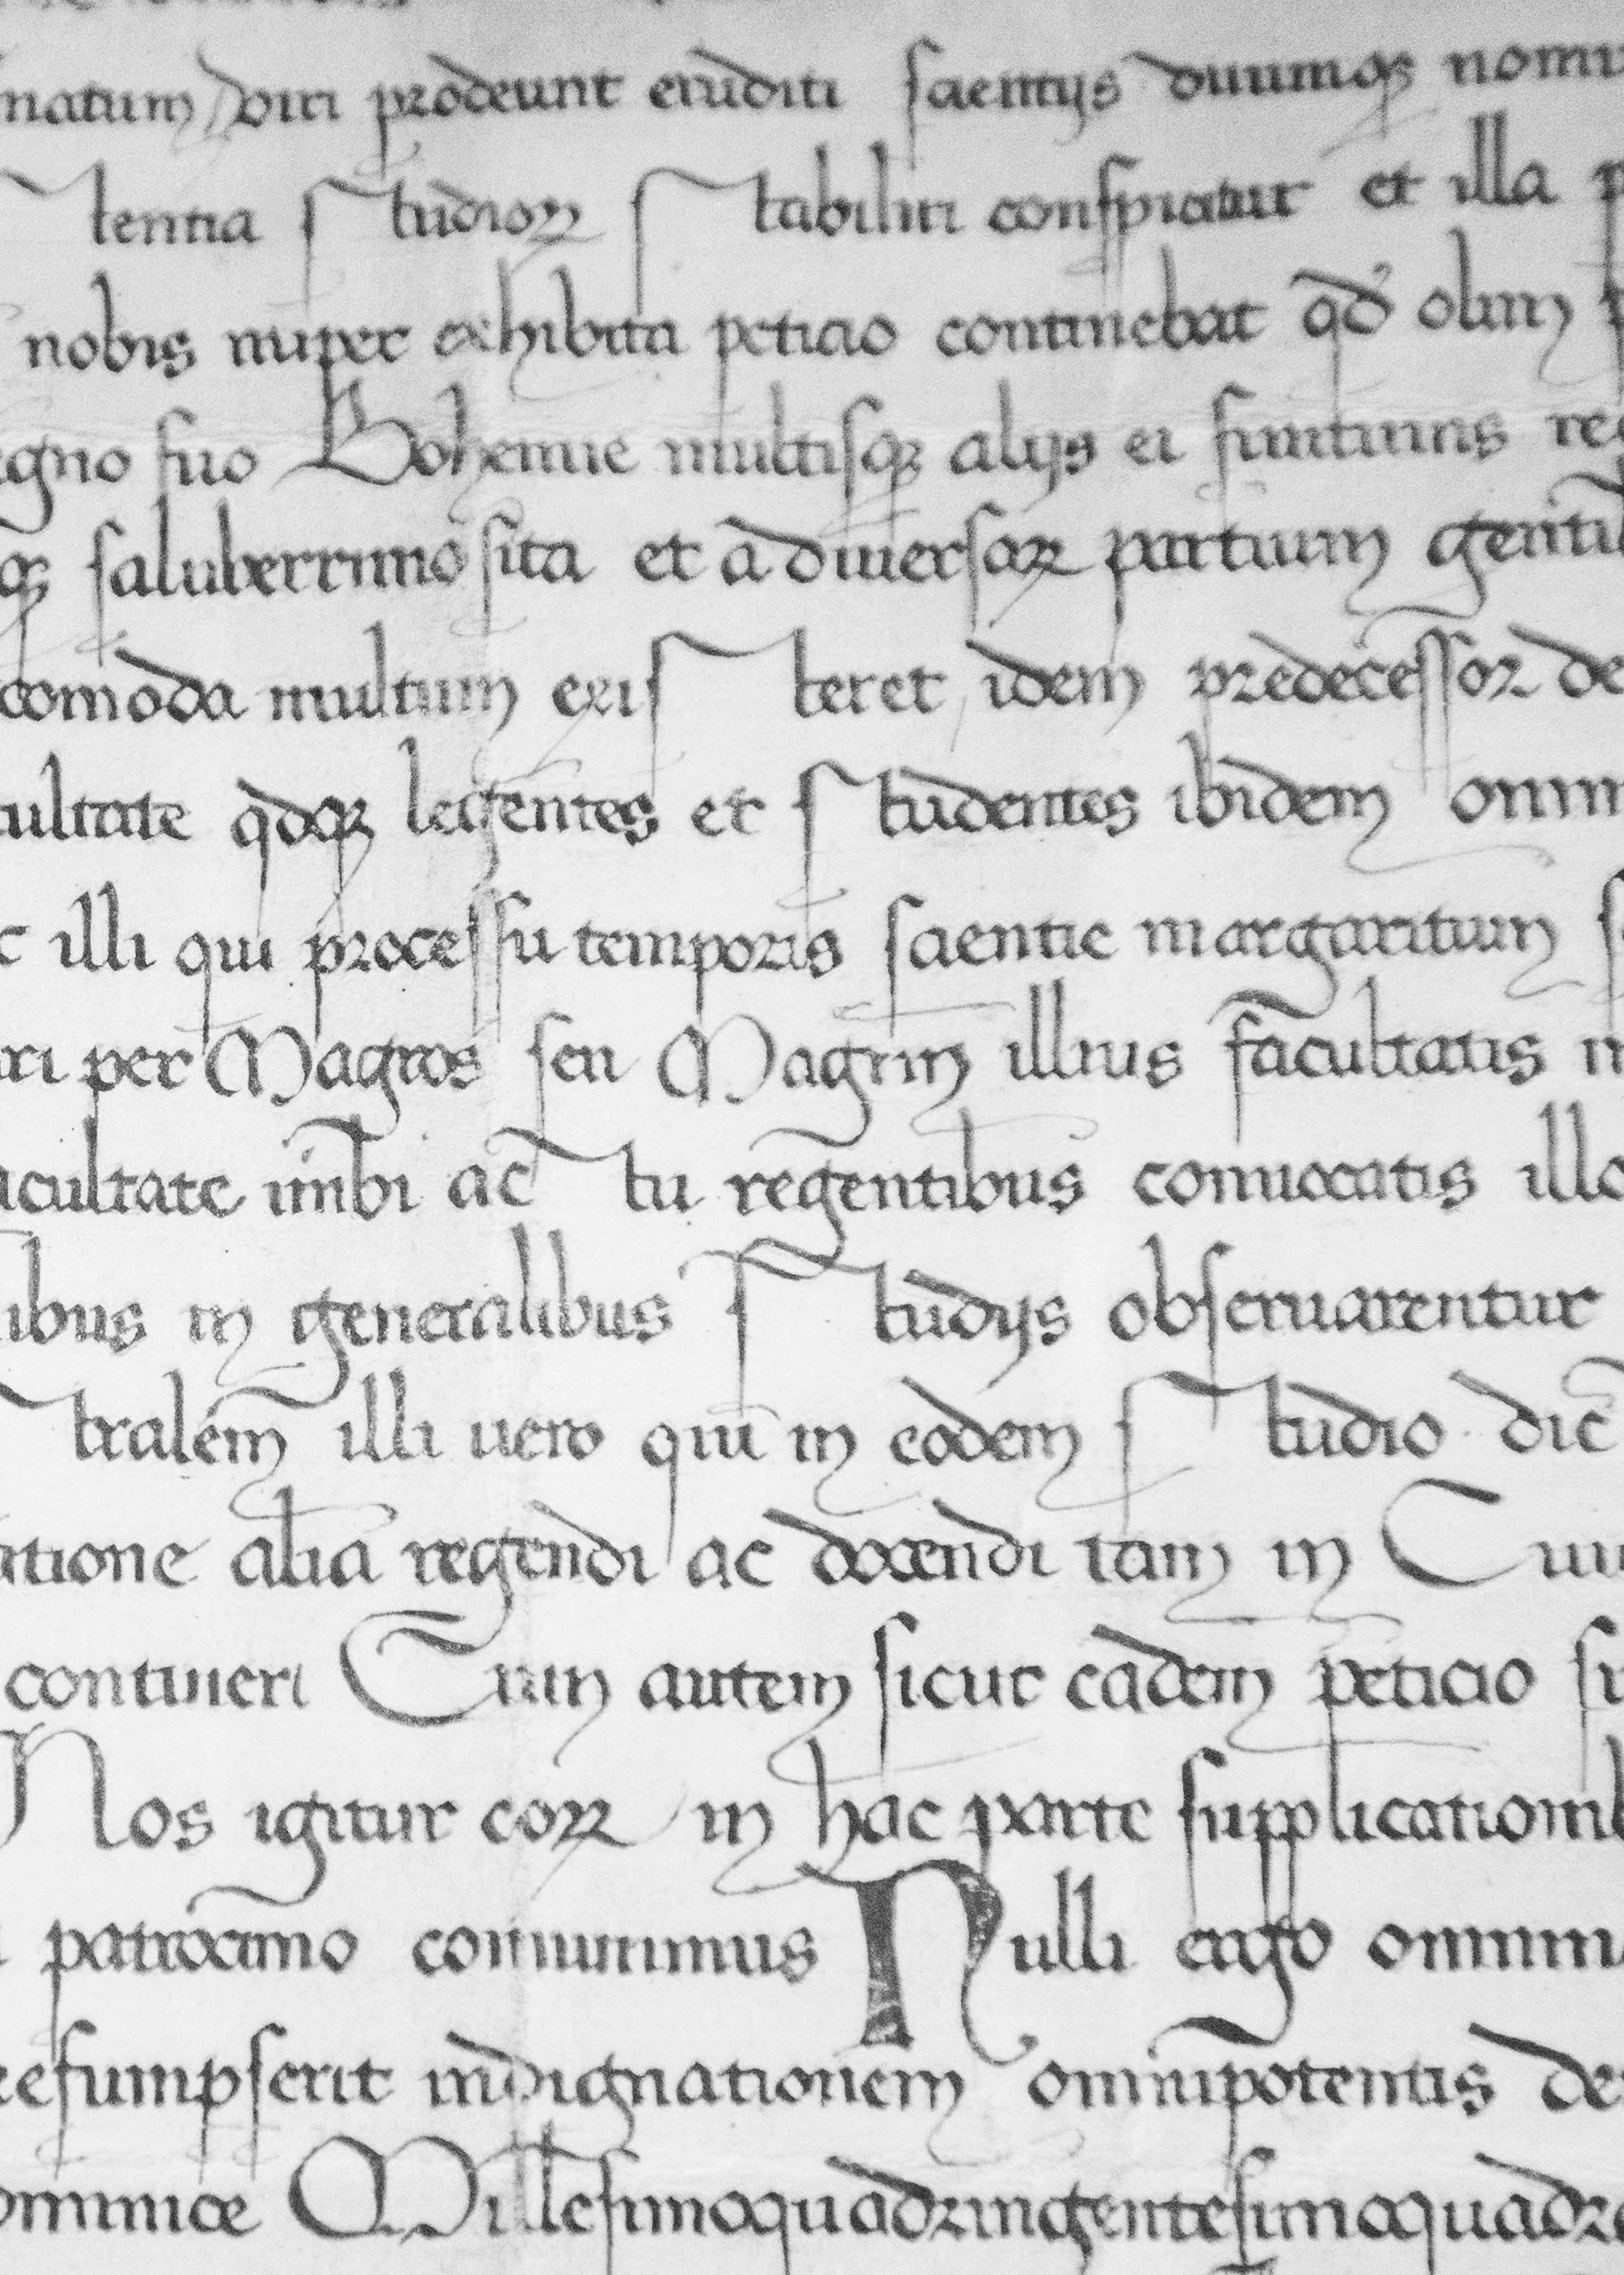 natum viri prodeunt eruditi scientijs diuinumqꝫ nomi
tentia studioꝝ stabiliri conspiciatur et illa p
nobis nuper exhibita peticio continebat qđ olim
egno suo Bohemie multisqꝫ alijs ei finitimis re
qꝫ saluberrimo sita et a diuersaꝝ partium genti
comoda multum existeret idem predecessor de
cultate qdqꝫ legentes et studentes ibidem omni
c illi qui processu temporis scientie margaritum
ri per Magros seu Magrm illius facultatis
acultate inibi actu regentibus conuocatis illo
ibus in generalibus studijs obseruarentur
tralem illi uero qui in eodem studio dic
atione alia regendi ac docendi tam in Ciui
contineri Cum autem sicut eadem peticio su
Nos igitur eoꝝ in hac parte supplicationib
patrocinio communimus Nulli ergo omnin
resumpserit indignationem omnipotentis de
ominice Millesimoquadringentesimoquadra